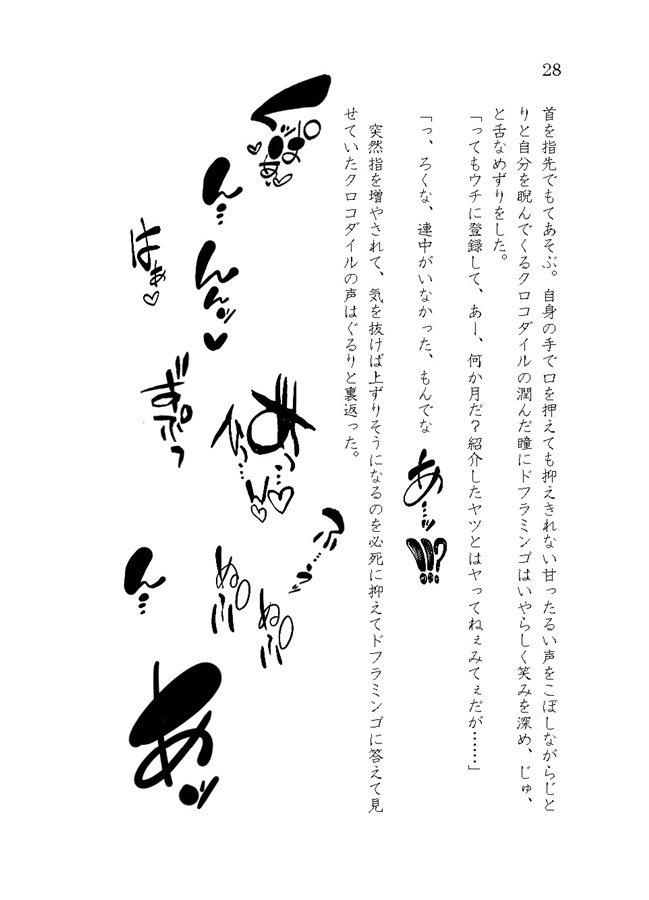 28
首を指先でもてあそぶ。自身の手で口を押えても抑えきれない甘ったるい声をこぼしながらじと
りと自分を睨んでくるクロコダイルの潤んだ瞳にドフラミンゴはいやらしく笑みを深め、じゅ、
と舌なめずりをした。
「ってもウチに登録して、あー、何か月だ？紹介したヤツとはヤってねぇみてぇだが……」
「っ、ろくな、連中がいなかった、もんでな
あ…ッ!!!?
突然指を増やされて、気を抜けば上ずりそうになるのを必死に抑えてドフラミンゴに答えて見
せていたクロコダイルの声はぐるりと裏返った。
ふ…ぅッ
あっ…♡
ん…
んんッ♥
はぁ♡
ずぷっ
ぬぷ
ぬぷ
ん…
あッ